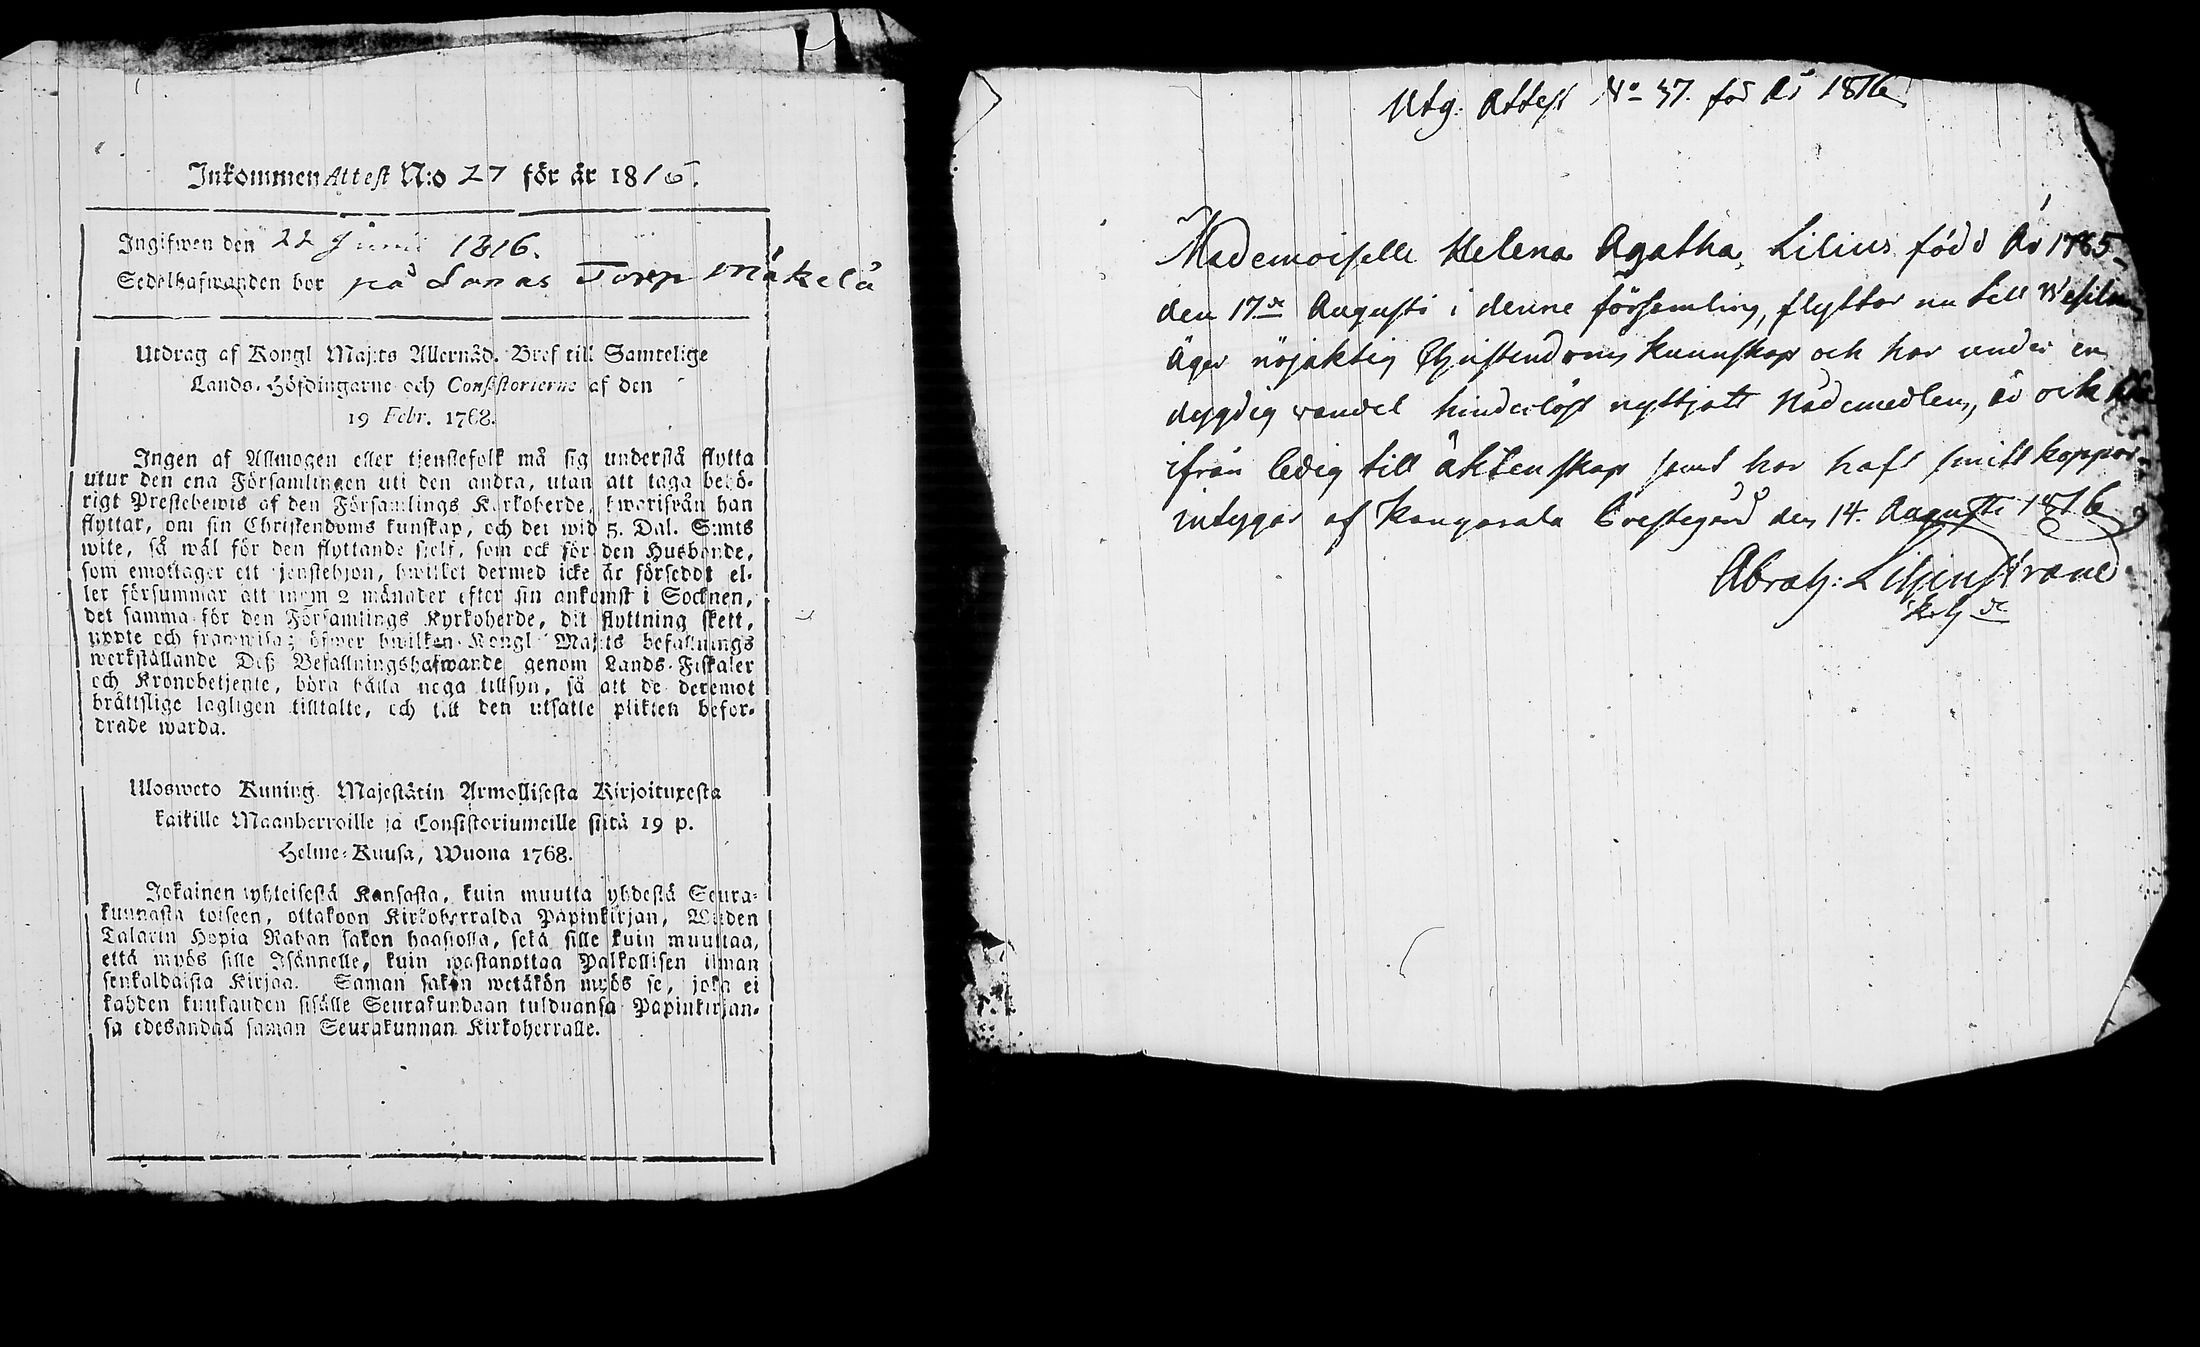 Inkommen Attest N:o 27 för år 1816.
Ingifwen den 22 Junii 1816.
Sedelhafwanden bor på Lanas Torp Mäkelä
Utdrag af Kongl Maj:ts Allernåd. Bref till Samtelige
Lands-Höfdingarne och Consistorierne af den
19 Febr. 1768.
Ingen af Allmogen eller tjenstefolk må sig understå flytta
utur den ena Församlingen uti den andra, utan att taga behö-
rigt Prestebewis af den Församlings Kyrkoherde, hwarifrån han
flyttar, om sin Christendoms kunskap, och det wid 5. Dal. S:mts
wite, så wäl för den flyttande sielf, som ock för den Husbonde,
som emottager ett tjenstehjon, hwilket dermed icke är försedt el-
ler försummar att inom 2 månader efter sin ankomst i Socknen,
det samma för den Församlings Kyrkoherde, dit flyttning skett,
uppte och framwisa; öfwer hwilken Kongl Maj:ts befallnings
werkställande Deß Befallningshafwande genom Lands-Fiskaler
och Kronobetjente, böra hålla noga tillsyn, så att de deremot
bråttslige lagligen tilltalte, och till den utsatte plikten befor-
drade warda.
Ulosweto Kuning. Majestätin Armollisesta Kirjoituxesta
kaikille Maanherroille ja Consistoriumeille siitä 19 p.
Helme-Kuusa, Wuona 1768.
Jokainen yhteisestä Kansasta, kuin muutta yhdestä Seura-
kunnasta toiseen, ottakoon Kirkoherralda Papinkirjan, Wiiden
Talarin Hopia Rahan sakon haastolla, sekä sille kuin muuttaa,
että myös sille Isännelle, kuin wastanottaa Palkollisen ilman
senkaldaista Kirjaa. Saman sakon wetäkön myös se, joka ei
kahden kuukauden sisälle Seurakundaan tulduansa Papinkirjan-
sa edesandaa saman Seurakunnan Kirkoherralle.
Utg. Attest No 37. för År 1816
Mademoiselle Helena Agatha Lilius född År 1785
den 17de Augusti i denne församling, flyttar nu till Wesilax
äger nöjaktig Christendoms kunnskap och har under en
dygdig vandel hinderlöst nyttjatt Nådemedlen, är ock
ifrån ledig till äktenskap samt har haft smitt koppor
intygar af Kangasala Prestegård den 14. Augusti 1816
Abrah: Liljenstrand